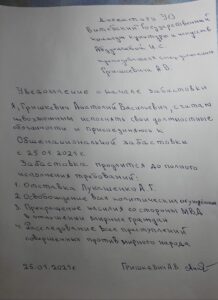 Директору УО
Витебский Государственный
колледж культуры и искусств
И.С.
Гришкевича А.В.
Уведомление о начале забастовки
Я, Гришкевич Анатолий Васильевич, считаю
исполнять свои должностные
обязанности и присоединяюсь к
Общенациональной забастовке
с 25.01.2021 г.
Забастовка продлится до полного
исполнения требований:
1. Отставка Лукашенко А.Г.
2. Освобождение всех политических осуждённых
3. Прекращение насилия со стороны МВД
в отношении мирных граждан
4. Расследование всех преступлений
совершённых против мирного народа.
25.01.2021г. Гришкевич А.В.